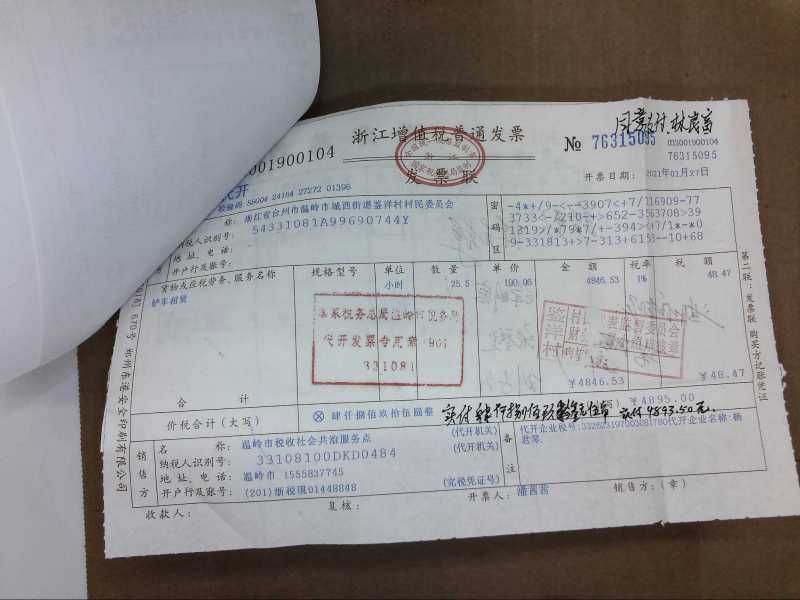 浙江增值税普通发票
发票联
033001900104
№ 76315095
033001900104
76315095
代开
校验码 85004 24164 27272 01396
开票日期: 2021年03月27日
名 称: 浙江省台州市温岭市城西街道鉴洋村村民委员会
纳税人识别号: 54331081A99690744Y
地址、电话:
开户行及账号:
密码区
-4*+/9-<-+3907<+7/116909-77
3733<-2210-+>652-3563708>39
1319>/*79*7/+-394><+7/1*-*0
9-331813+>7-313+6153--10+68
货物或应税劳务、服务名称 规格型号 单位 数量 单价 金额 税率 税额
铲车租赁 小时 25.5 190.06 4846.53 1% 48.47
代开发票专用章
331081
合 计 ¥4846.53 ¥48.47
价税合计(大写) ⊗ 肆仟捌佰玖拾伍圆整 ¥4895.00
实付
实付4893.50元.
销售方
名 称: 温岭市税收社会共治服务点 (代开机关)
纳税人识别号: 33108100DKD0484 (代开机关)
地址、电话: 温岭市 1555837745
开户行及账号: (201)浙税现01448848 (完税凭证号)
备注
代开企业税号:332623197003081780代开企业名称:杨
君琴
收款人: 复核: 开票人: 潘茜茜 销售方:(章)
第二联:发票联 购买方记账凭证